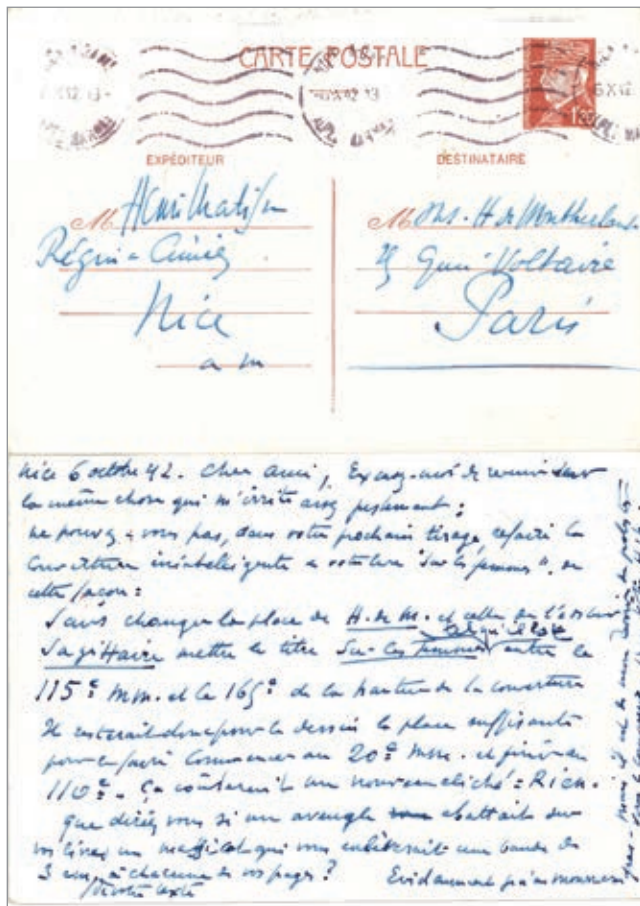 CARTE POSTALE
6 X 42 13
1,20
EXPÉDITEUR
DESTINATAIRE
M Henri Matisse
M ons. H de Montherlant
Régina Cimiez
25 Quai Voltaire
Nice
Paris
a m
Nice 6 octobre 42. Cher ami, Excusez-moi de revenir sur
la même chose qui m'irrite assez justement :
ne pouvez-vous pas, dans votre prochain tirage, refaire la
couverture inintelligente a votre livre "Sur les femmes", de
cette façon :
Sans changer la place de H. de M. et celle de
Sagittaire mettre le titre Sur les femmes entre le
115e mm. et le 165e de la hauteur de la couverture
Il resterait donc pour le dessin la place suffisante
pour le faire commencer au 20e mm. et finir au
110e. Ça coûterait un nouveau cliché = Rien.
que diriez vous si un aveugle abattait sur
vos livres un massicot qui vous enlèverait une bande de
3 cm à chacune de vos pages ?
de votre texte
Evidemment